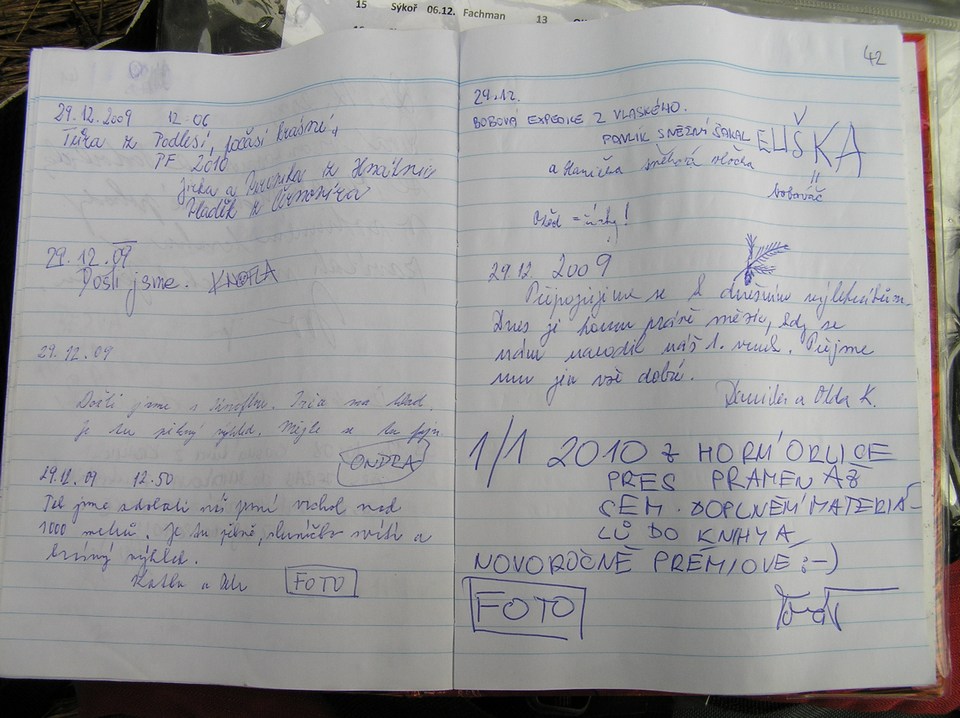 15 Sýkoř 06.12. Fachman 13
29.12.2009 12.06
Túra z Podlesí, počasí krásné,
PF 2010
Jirka a Veronika z
Hladěk z
29.12.09
Došli jsme. KNOFLA
29.12.09
Došli jsme s Knoflou. má hlad.
Je tu pěkný výhled. Mějte se tu fajn.
ONDRA
29.12.09 12.50
Teď jsme zdolali náš první vrchol nad
1000 metrů. Je tu pěkně, sluníčko svítí a
krásný výhled.
Katka a FOTO
42
29.12.
BOBOVÁ EXPEDICE Z VLASKÉHO.
PAVLÍK SNĚŽNÍ ŠAKAL ELIŠKA
a Hanička sněhová vločka
=
bobováč
Oběd = !
29 12 2009
Připojujeme se k dnešním výletníkům.
Dnes je tomu právě měsíc, kdy se
nám narodil náš 1. vnuk. Přejme
mu jen vše dobré.
a Olda K.
1/1 2010 Z HORNÍ ORLICE
PŘES PRAMEN AŽ
SEM. DOPLNĚNÍ MATERIÁ-
LŮ DO KNIHY A
NOVOROČNĚ PRÉMIOVÉ :-)
FOTO